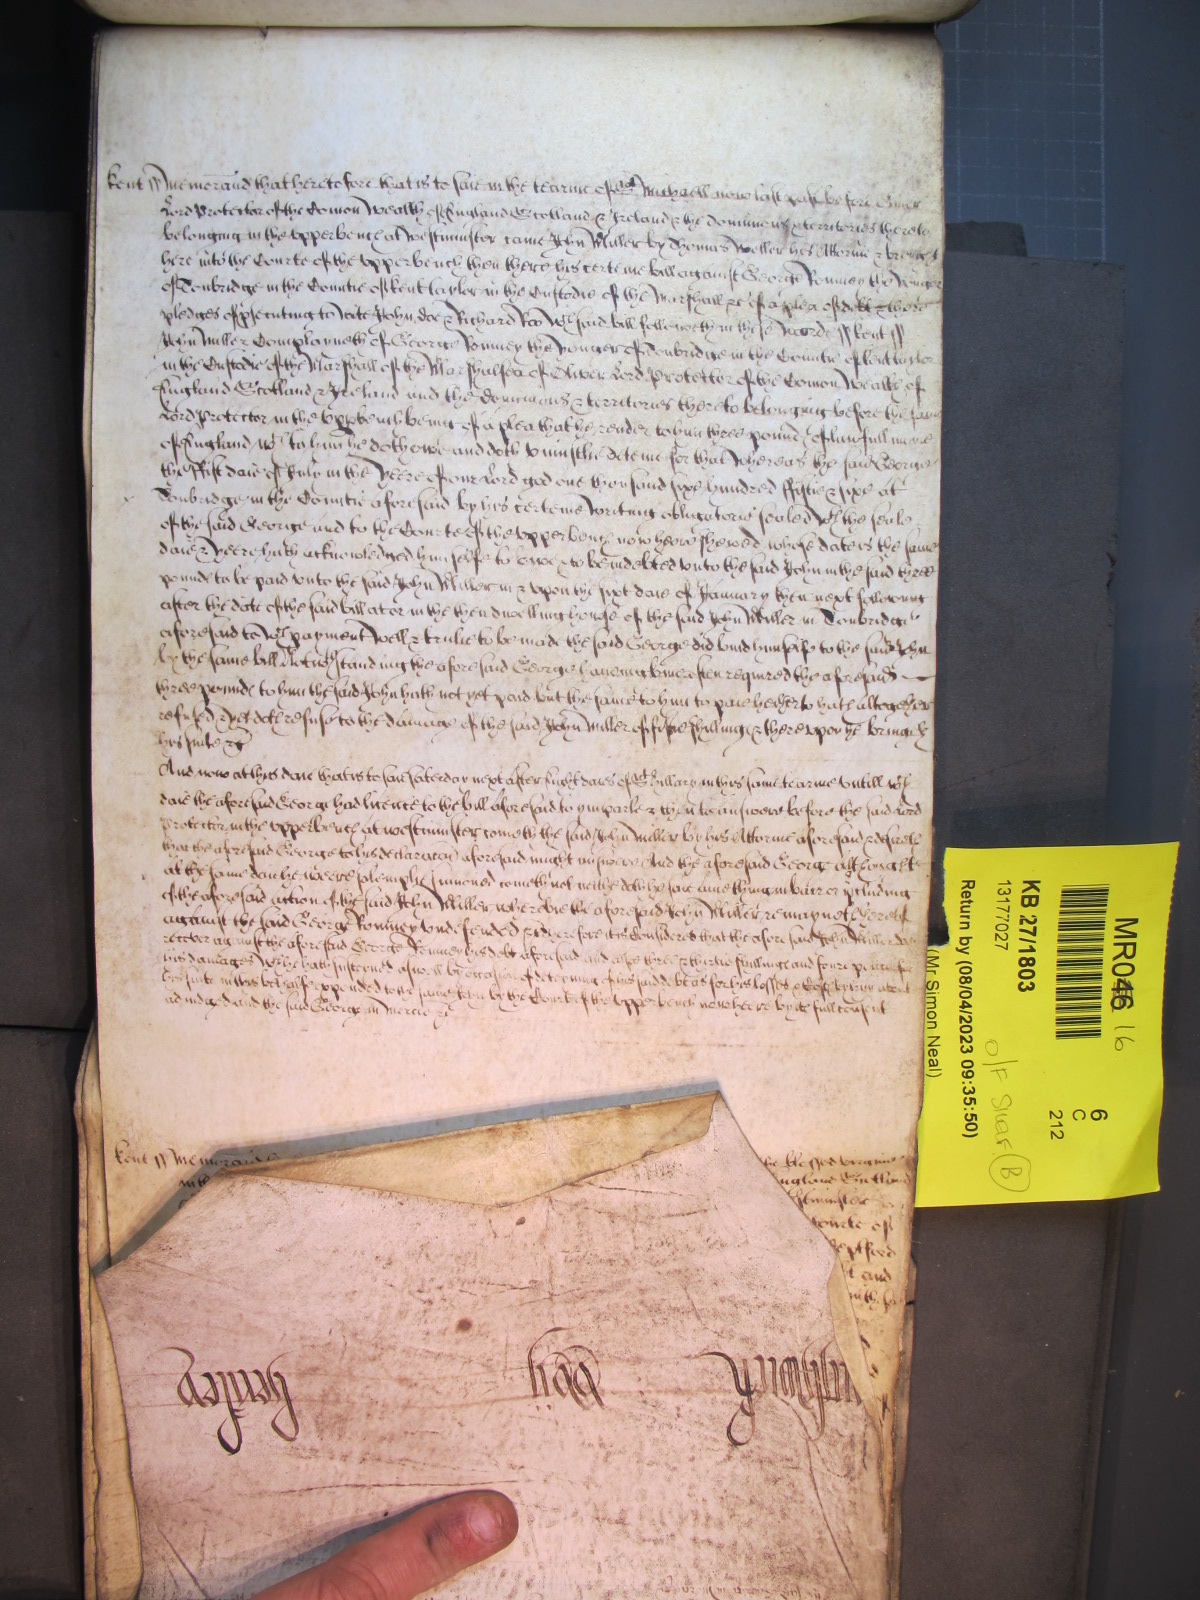 kent ss Memorand that heretofore that is to saie in the tearme of St Michaell now last past before Oliver
Lord Protector of the Comon Wealth of England Scotland & Ireland & the dominions & territories thereto
belonging in the upperbench at Westminster came John Miller by Thomas Weller his Attornie & brought
here into the Courte of the upperbench then there his certeine bill against George Romney the Younger
of Tonbridge in the Countie of kent taylor in the Custodie of the Marshall &c of a plea of debt & there
pledges of psecuting to wite John doe & Richard Roo Wch said bill followeth in these words ss kent ss
John Miller Complayneth of George Romney the Younger of Tonbridge in the Countie of kent taylor
in the Custodie of the Marshall of the Marshalsea of Oliver Lord Protector of the Comon Wealth of
England Scotland & Ireland and the Dominions & territories thereto belonging before the same
Lord Protector in the upperbench being of a plea that he render to him three pounds of lawfull money
of England wch to him he doth owe and doth uniustlie deteine for that Whereas the said George
the first daie of July in the Yeere of our Lord god one thousand sixe hundred fiftie & sixe at
Tonbridge in the Countie aforesaid by his certeine writing obligatorie sealed wth the seale
of the said George and to the Courte of the upperbench now heere shewed whose date is the same
daie & yeere hath acknowledged him selfe to owe & to be indebted unto the said John in the said three
pounds to be paid unto the said John Miller in & upon the sixt daie of January then next following
after the date of the said bill at or in the then dwelling house of the said John Miller in Tonbridge
aforesaid to wch payment well & trulie to be made the said George did bind himself to the said John
by the same bill Notwthstanding the aforesaid George haveing bine often required the aforesaid
three pounds to him the said John hath not yet paid but the same to him to paie hetherto hath altogether
refused & yet doth refuse to the damage of the said John Miller of five shillings & there upon he bringeth
his suite &c
And now at this daie that is to saie saterday next after Eight daies of St Hillary in this same tearme untill wch
daie the aforesaid George had licence to the bill aforesaid to imparle & then to answere before the said Lord
Protector in the upperbench at westminster cometh the said John Miller by his Attornie aforesaid & desireth
that the aforesaid George to his declaracon aforesaid might answere And the aforesaid George although
at the same daie he weere solemplie sumoned cometh not neither doth he saie anie thing in barr or pcluding
of the aforesaid action of the said John Miller wherebie the aforesaid John Miller remayneth thereof
against the said George Romney undefended & therefore it is Considered that the afore said John Miller doe
recover against the aforesaid George Romney his debt aforesaid and alsoe three & thirtie shillings and foure pence for
his damages wch he hath susteyned aswell by occasion of deteyning of his said debt as for his losses & Costs by him about
his suite in this behalfe expended to the same John by the Court of the upperbench now heere by its full consent
adiudged and the said George in mercie &c
kent ss Memorand
the blessed virgin
England Scotland
Westminster
Courte of
Deptford
and
henley
MR046 16
6
C
212
KB 27/1803
13177027
Return by (08/04/2023 09:35:50)
(Mr Simon Neal)
B